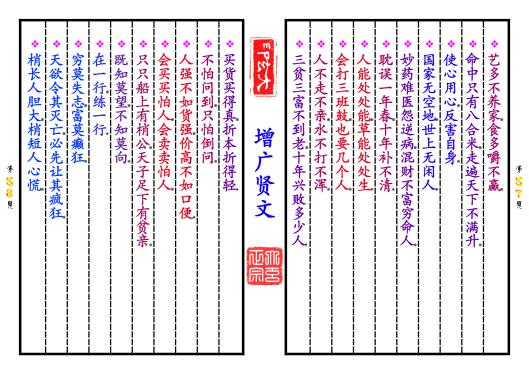 艺多不养家食多嚼不赢。
命中只有八合米走遍天下不满升。
使心用心反害自身。
国家无空地世上无闲人。
妙药难医怨逆病混财不富穷命人。
耽误一年春十年补不清。
人能处处能草能处处生。
会打三班鼓也要几个人。
人不走不亲水不打不浑。
三贫三富不到老十年兴败多少人。
第57页
增广贤文
买货买得真折本折得轻。
不怕问到只怕倒问。
人强不如货强价高不如口便。
会买买怕人会卖卖怕人。
只只船上有梢公天子足下有贫亲。
既知莫望不知莫向。
在一行练一行。
穷莫失志富莫癫狂。
天欲令其灭亡必先让其疯狂。
梢长人胆大梢短人心慌。
第58页